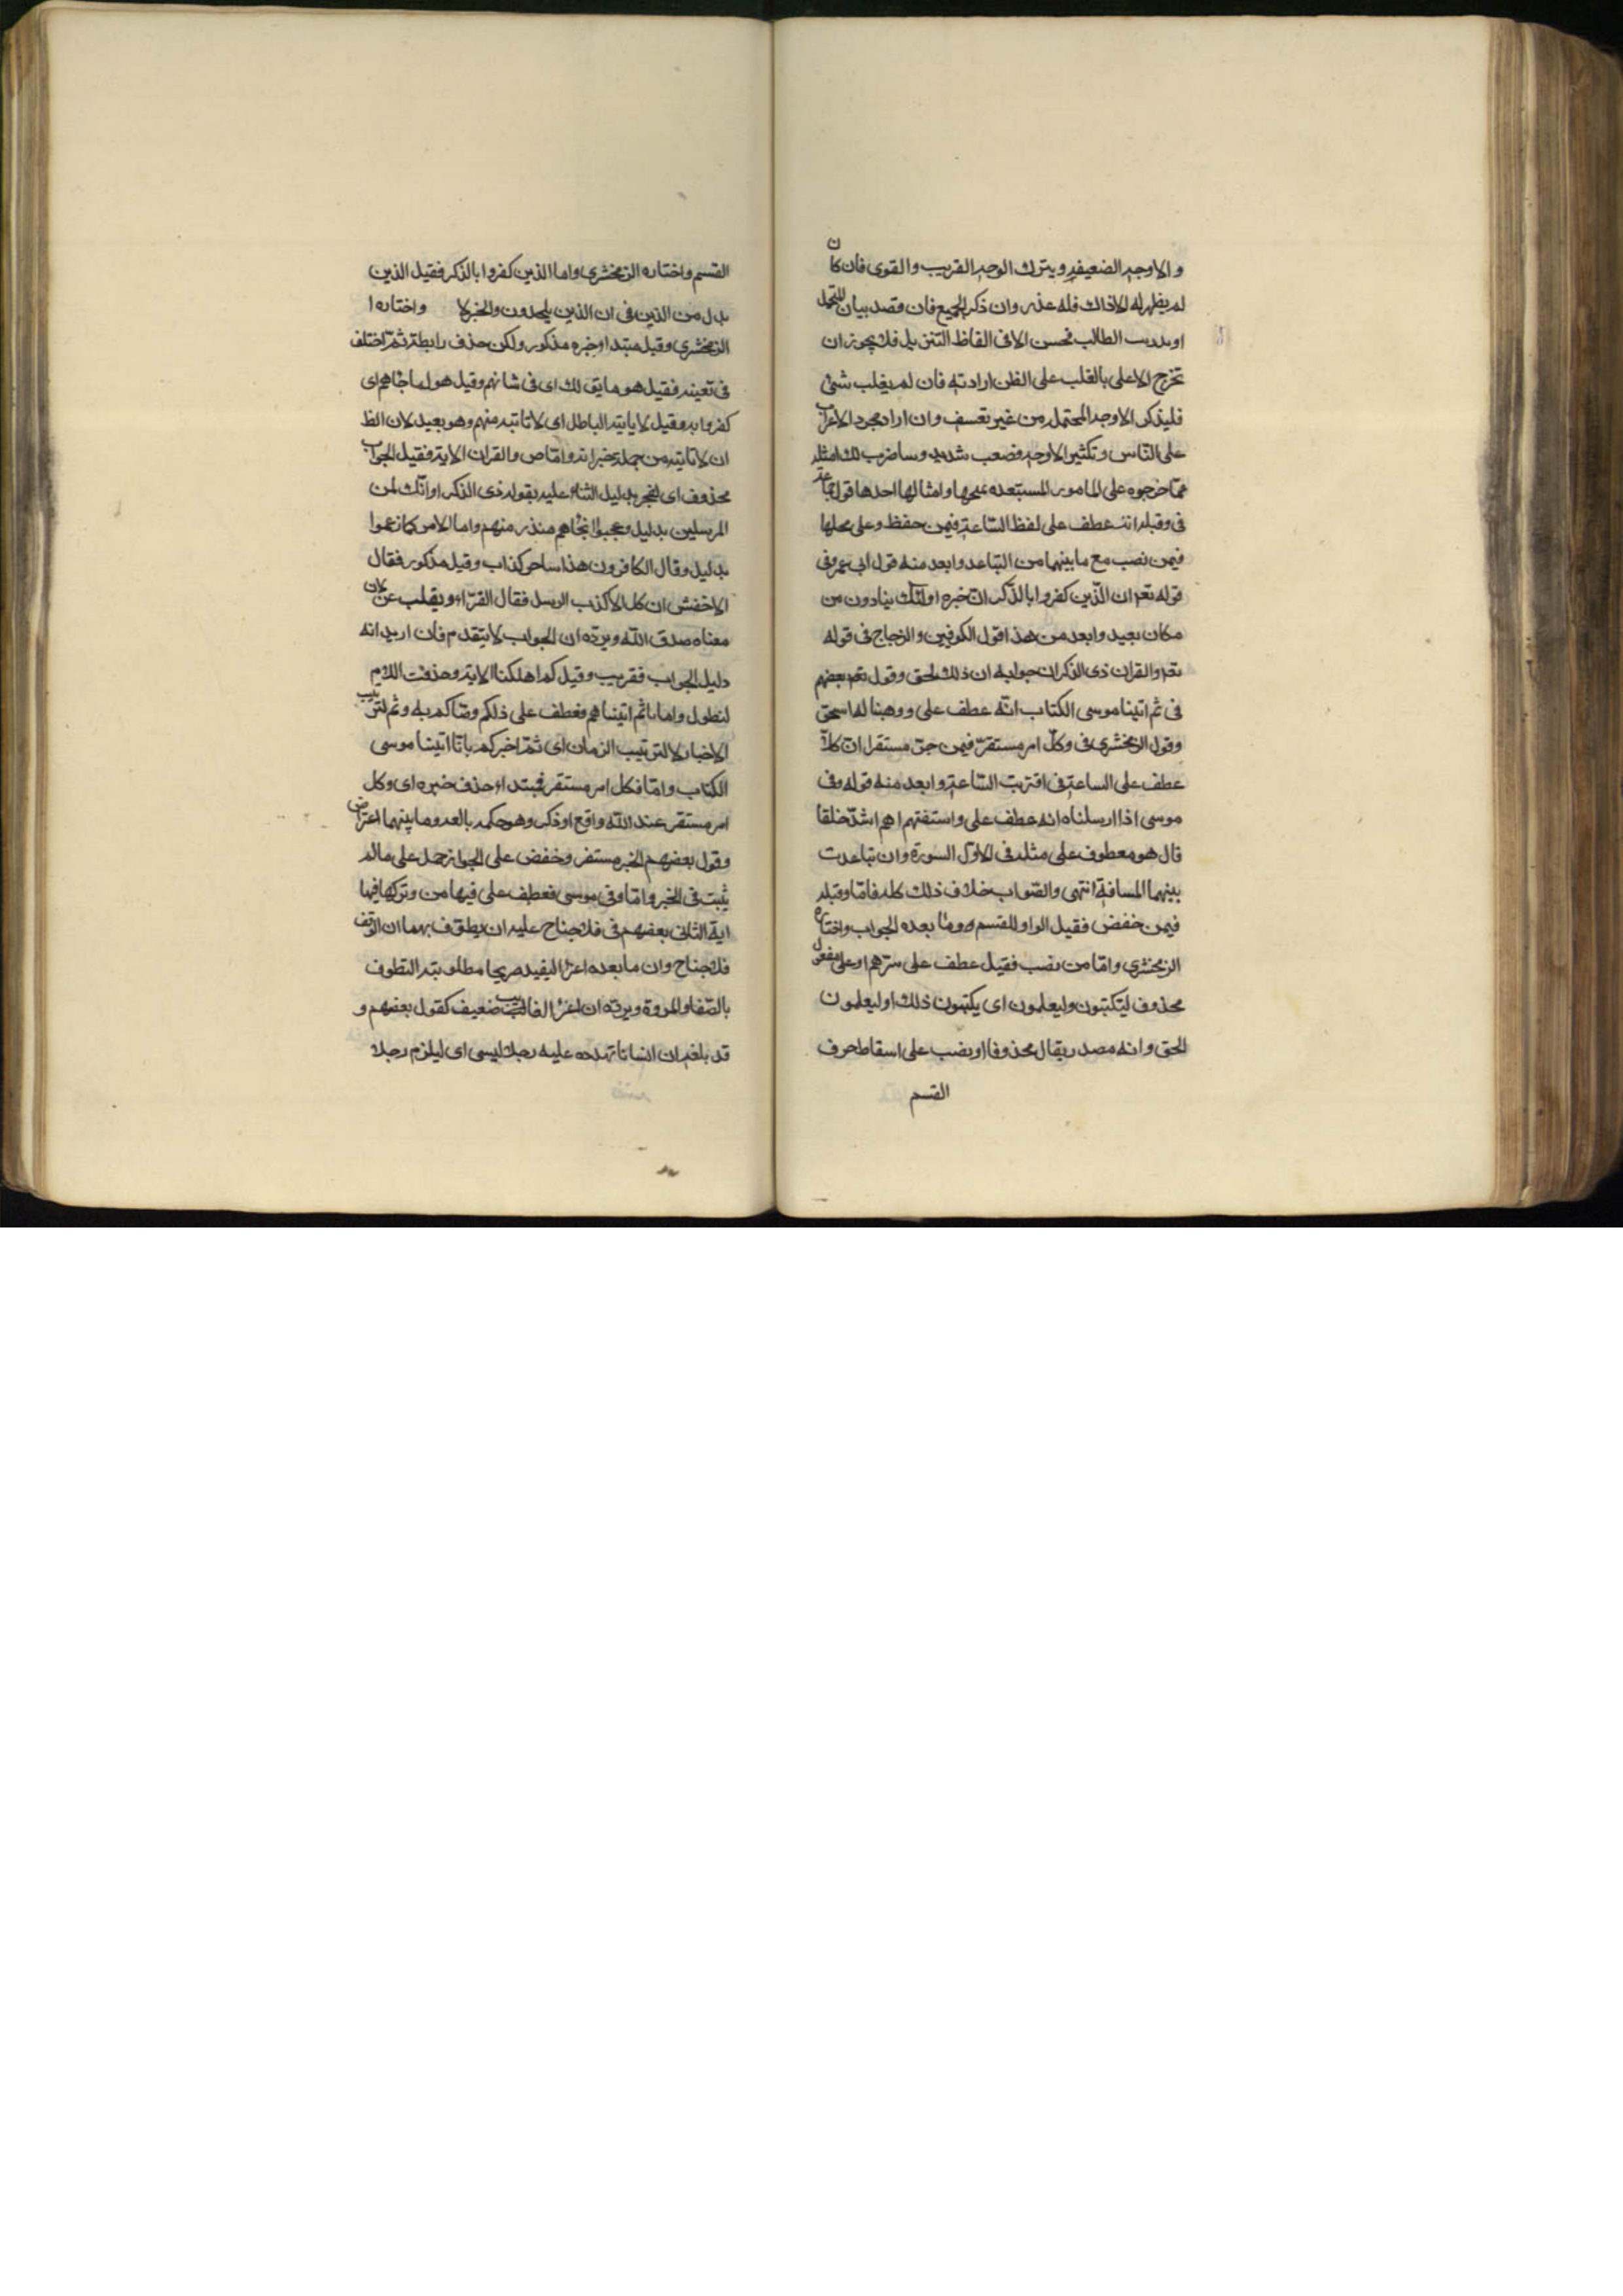 والاوجه الضعيفه ويترك الوجه القريب والقوى فان كان
لم يظهر له الاذاك فله عذر وان ذكر الجميع فان قصد بيان المحتمل
او تدريب الطالب فحسن الا فى الفاظ التنزيل فلا يجوز ان
تخرج الا على بالغلب على الظن ارادته فان لم يغلب شئ
فليذكر الاوجه المحتمله من غير تعسف وان اراد مجرد الاعراب
على الناس وتكثير الاوجه فصعب شديد وساضرب لك امثله
مما خرجوه على الامور المستبعده احدها قول جماعة
فى وقيله انه عطف على لفظ الساعة فيمن خفض وعلى محلها
فيمن نصب مع ما بينهما من التباعد وابعد منه قول ابى عمرو فى
قوله تعم ان الذين كفروا بالذكر ان خبره اولئك ينادون من
مكان بعيد وابعد من هذا قول الكوفيين والزجاج فى قوله
تعم والقران ذى الذكر ان جوابه ان ذلك لحق وقول بعضهم
فى ثم اتينا موسى الكتاب انه عطف على ووهبنا له اسحق
وقول الزمخشرى فى وكل امر مستقر فيمن جر مستقرا ان كلا
عطف على الساعة فى اقتربت الساعة وابعد منه قوله وفى
موسى اذ ارسلناه انه عطف على واستفتهم اهم اشد خلقا
قال هو معطوف على مثله فى الاول السورة وان تباعدت
بينهما المسافة انتهى والصواب خلاف ذلك كله فاما وقيله
فيمن خفض فقيل الواو للقسم وما بعده الجواب واختاره
الزمخشرى واما من نصب فقيل عطف على سرهم او على مفعول
محذوف ليكتبون وليعلمون اى يكتبون ذلك او ليعلمون
الحق وانه مصدر يقال محذوفا او نصب على اسقاط حرف
القسم
القسم واختاره الزمخشرى واما الذين كفروا بالذكر فقيل الذين
بدل من الذين فى ان الذين يلحدون والخبر لا واختاره ا
الزمخشرى وقيل مبتدا وخبره مذكور ولكن حذف رابطة ثم اختلف
فى تعينه فقيل هو ما يق لك اى فى شانهم وقيل هو لما جائهم اى
كفروا به وقيل لا ياتيه الباطل اى لا تاتيه منهم وهو بعيد لان الظ
ان لا تاتيه من جملة خبر انه واما ص والقران الاية فقيل الجواب
محذوف اى لمعجز بدليل الثناء عليه بقوله ذى الذكر او انك لمن
المرسلين بدليل وعجبوا ان جائهم منذر منهم واما الامر كما زعموا
بدليل وقال الكافرون هذا ساحر كذاب وقيل مذكور فقال
الاخفش ان كل الا كذب الرسل فقال الفراء و لان
معناه صدق الله ويرده ان الجواب لا يتقدم فان اريد انه
دليل الجواب فقريب وقيل كم اهلكنا الاية وحذفت اللام
لتطول واما ثم اتيناهم فعطف على ذلكم وصاكم به وثم لترتيب
الاخبار لا لترتيب الزمان اى ثم اخبركم بانا اتينا موسى
الكتاب واما فكل امر مستقر فمبتداء حذف خبره اى وكل
امر مستقر عند الله واقع او ذكر وهو حكمه بالعه وما بينهما اعتراض
وقول بعضهم الخبر مستقر وخفض على الجوار حمل على مالم
يثبت فى الخبر واما وفى موسى فعطف على فيها من وتركها فيها
اية الثانى بعضهم فى فلا جناح عليه ان يطوف بهما ان الوقف
فلا جناح وان ما بعده اغراء ليفيد صريحا مطلوبته التطوف
بالصفا والمروة ويرده ان اغراء الغائب ضعيف كقول بعضهم و
قد بلغه ان انسانا تهدده عليه رجلا ليسى اى ليلزم رجلا